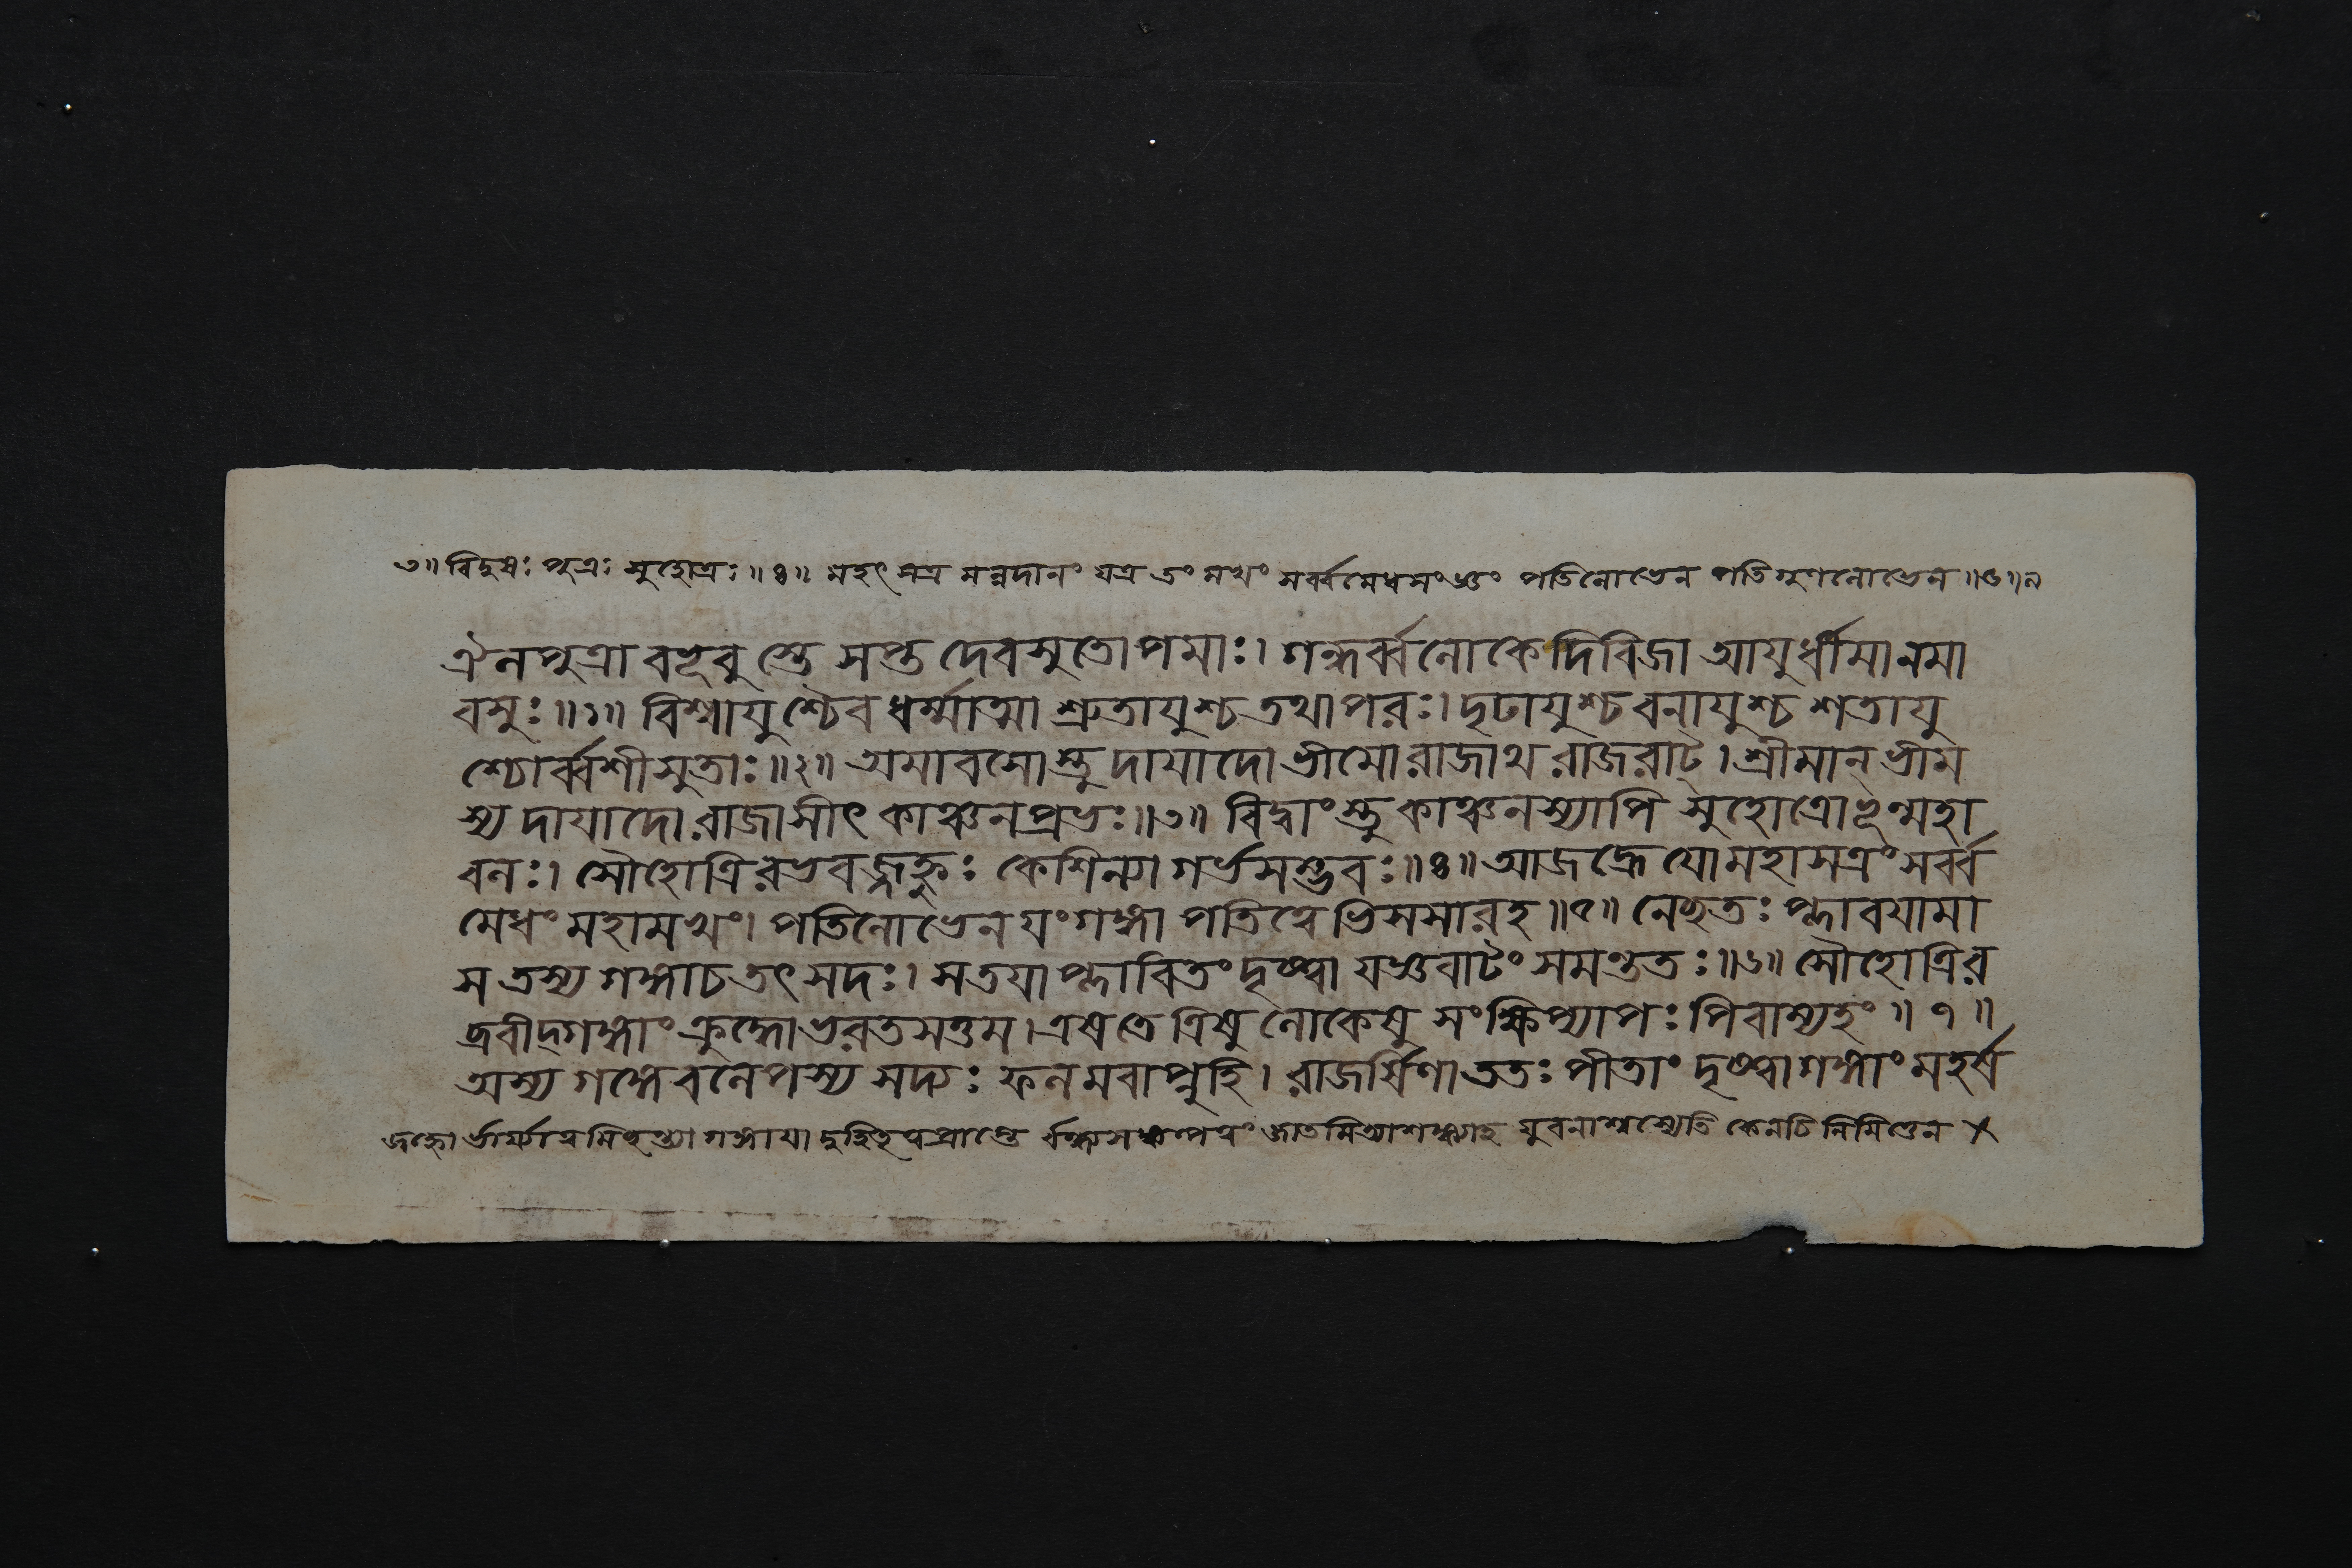 ৩॥ বিদুষঃ পুত্রঃ সুহোত্রঃ॥৪॥ মহৎ সত্র মন্নদানং যত্র তং মখং সর্ব্বমেধসংজ্ঞং পতিলোভেন পতিগুণলোভেন॥৫॥ন
ঐলপুত্রা বভূবুস্তে সপ্ত দেবসুতোপমাঃ। গন্ধর্ব্বলোকে দিবিজা আয়ুর্ধীমানমা
বসুঃ॥১॥ বিশ্বায়ুশ্চৈব ধর্ম্মাত্মা শ্রুতায়ুশ্চ তথাপরঃ। দৃঢায়ুশ্চ বনায়ুশ্চ শতায়ু
শ্চোর্ব্বশীসুতাঃ॥২॥ অমাবসোস্তু দায়াদো ভীমো রাজাথ রাজরাট্। শ্রীমান্ ভীম
স্য দায়াদো রাজাসীৎ কাঞ্চনপ্রভঃ॥৩॥ বিদ্বাংস্তু কাঞ্চনস্যাপি সুহোত্রোভূন্মহা
বলঃ। সৌহোত্রিরভবজ্জহ্নুঃ কেশিন্যা গর্ভসম্ভবঃ॥৪॥ আজহ্রে যো মহাসত্রং সর্ব্ব
মেধং মহামখং। পতিলোভেন যং গঙ্গা পতিত্বেভিসসার হ॥৫॥ নেচ্ছতঃ প্লাবয়ামা
স তস্য গঙ্গা চ তৎ সদঃ। স তয়া প্লাবিতং দৃষ্ট্বা যজ্ঞবাটং সমন্ততঃ॥৬॥ সৌহোত্রির
ব্রবীদ্গঙ্গাং ক্রুদ্ধো ভরতসত্তম। এষ তে ত্রিষু লোকেষু সংক্ষিপ্যাপঃ পিবাম্যহং॥৭॥
অস্য গঙ্গেবলেপস্য সদ্যঃ ফলমবাপ্নুহি। রাজর্ষিণা ততঃ পীতাং দৃষ্ট্বা গঙ্গাং মহর্ষ
জহ্নো র্ভার্য্যা গঙ্গায়া জাতমিত্যাশঙ্ক্যাহ যুবনাশ্বস্যেতি কেনচিন্নিমিত্তেন ×